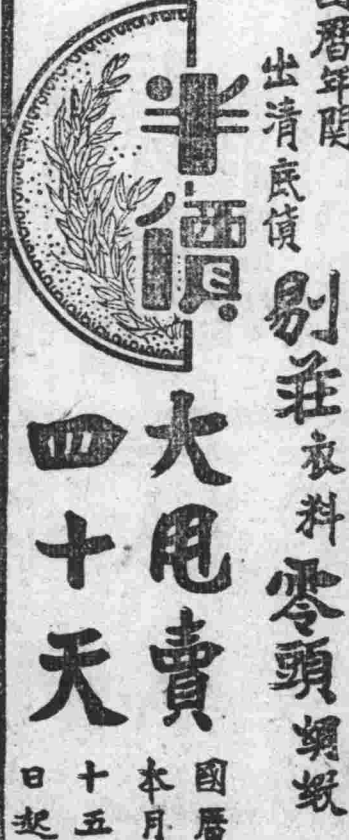 國曆年関
出清底貨
剔莊衣料零頭綢緞
半價
大甩賣
四十天
國曆
本月
十五
日起